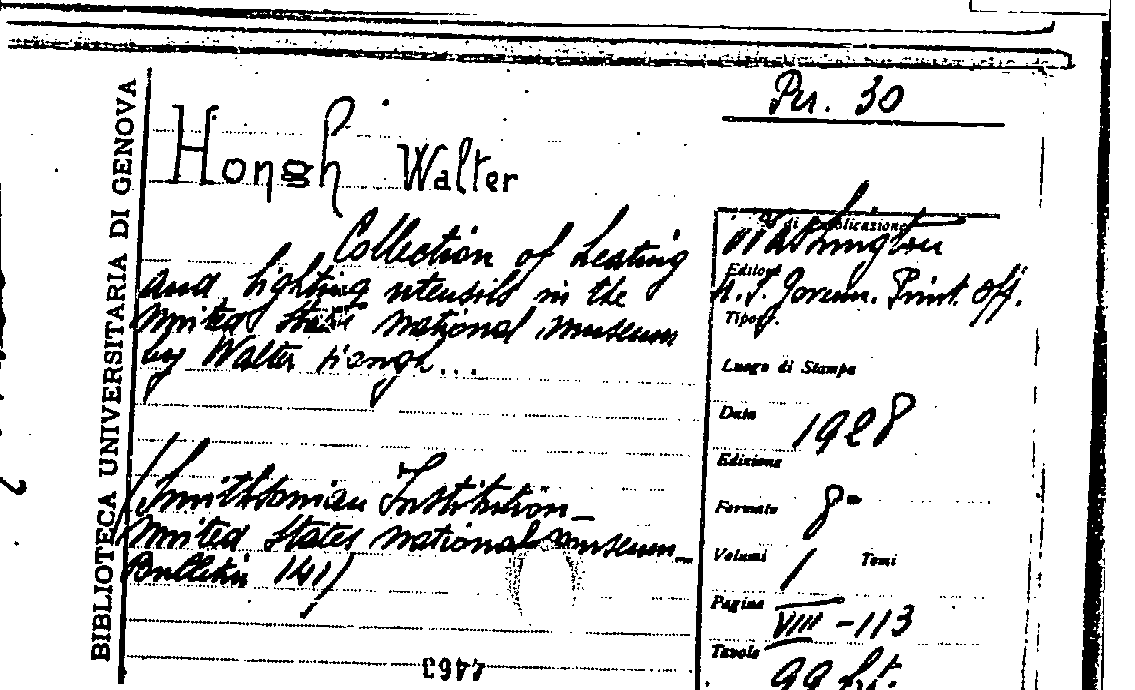 BIBLIOTECA UNIVERSITARIA DI GENOVA
Per. 30
Hongh Walter
Collection of heating
and lighting utensils in the
United States national museum
by Walter Hongh...
(Smithsonian Institution_
United States national museum_
Bulletin 141)
di pubblicazione
Washington
Editore
U.S. Govern. Print. Off.
Tipogr.
Luogo di Stampa
Data 1928
Edizione
Formato 8°
Volumi 1 Tomi
Pagine VIII-113
Tavole 99 f.t.
4463